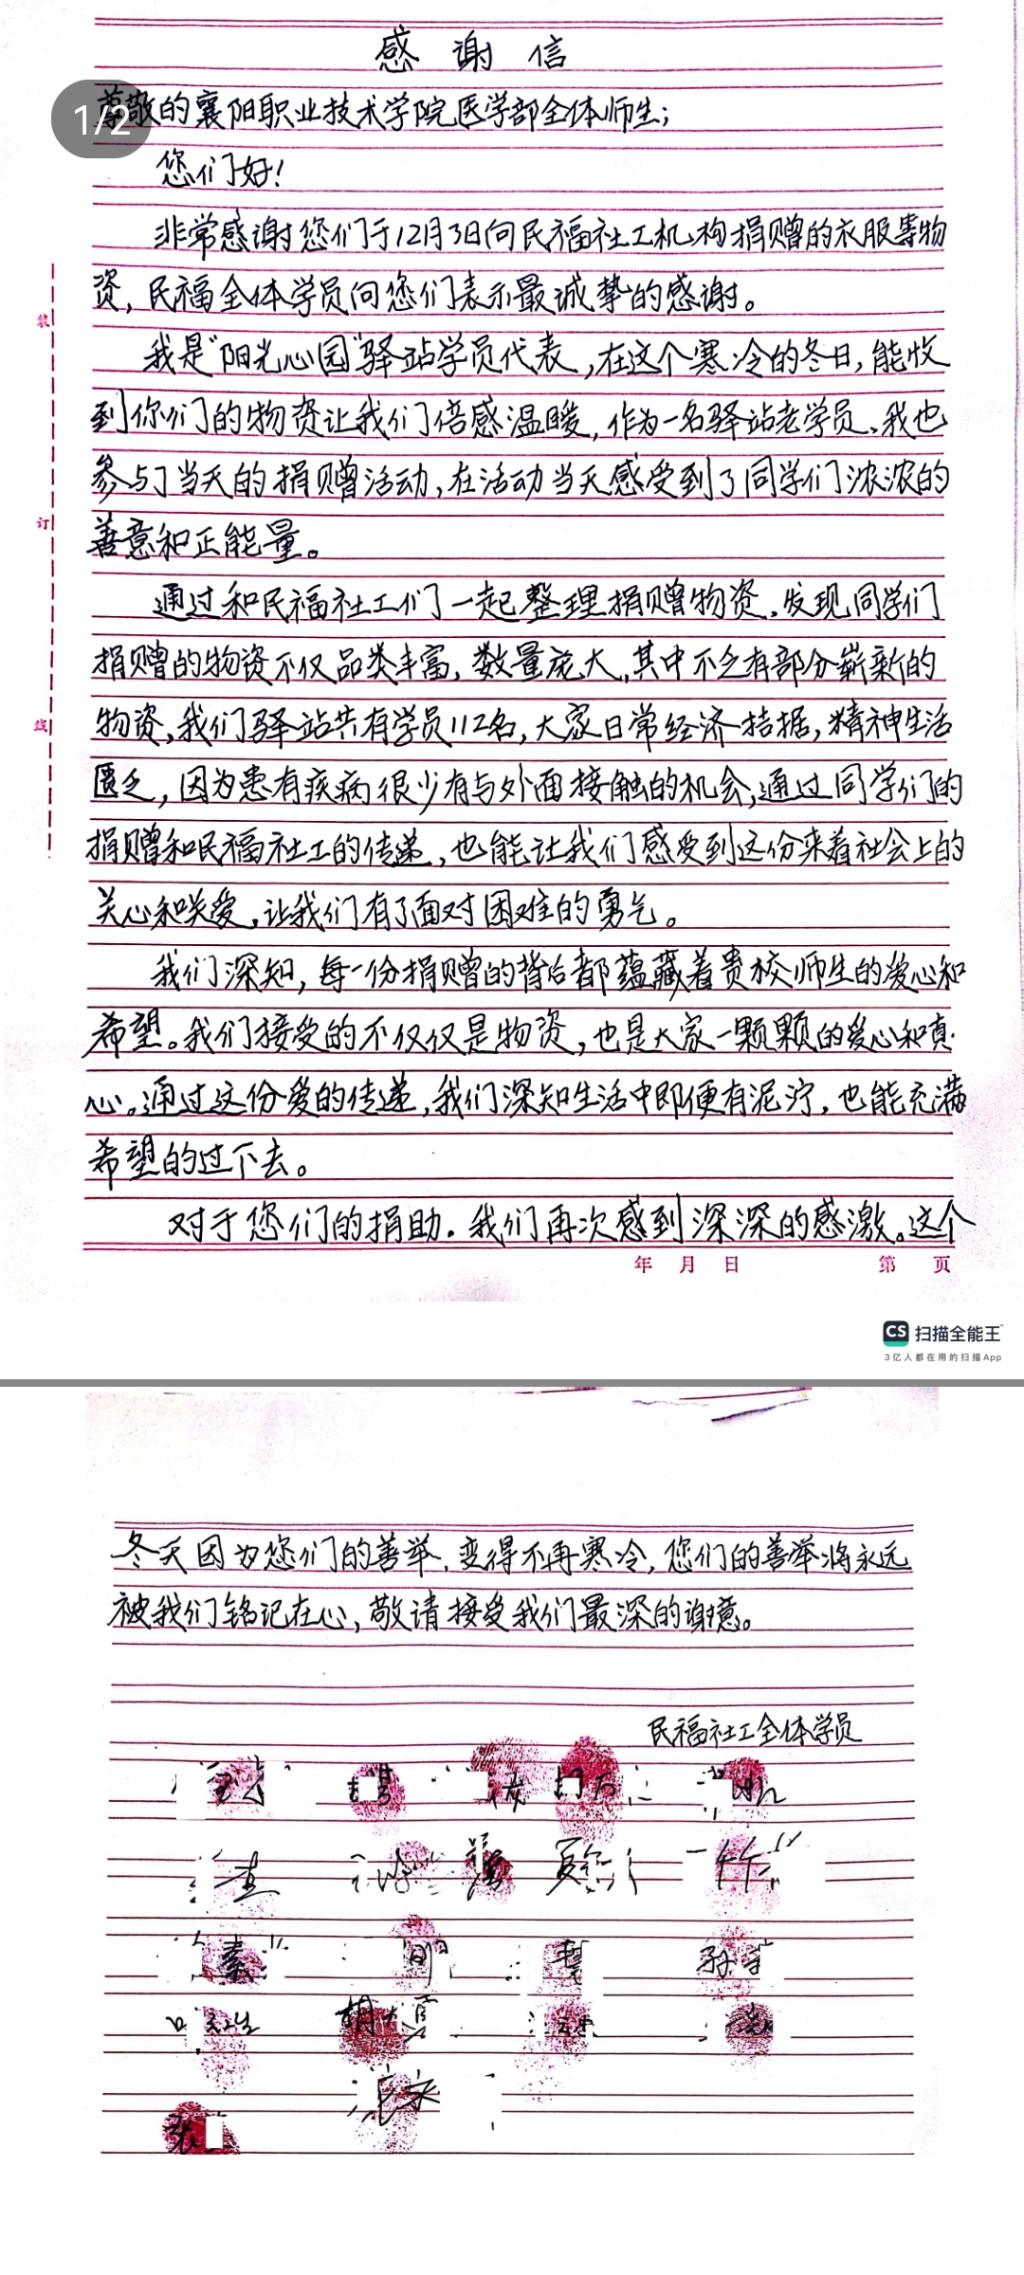 感谢信
1/2
尊敬的襄阳职业技术学院医学部全体师生；
您们好！
非常感谢您们于12月3日向民福社工机构捐赠的衣服等物
资，民福全体学员向您们表示最诚挚的感谢。
我是"阳光心园"驿站学员代表，在这个寒冷的冬日，能收
到你们的物资让我们倍感温暖，作为一名驿站老学员、我也
参与了当天的捐赠活动，在活动当天感受到了同学们浓浓的
善意和正能量。
通过和民福社工们一起整理捐赠物资，发现同学们
捐赠的物资不仅品类丰富，数量庞大，其中不乏有部分崭新的
物资，我们驿站共有学员112名，大家日常经济拮据，精神生活
匮乏，因为患有疾病很少有与外面接触的机会，通过同学们的
捐赠和民福社工的传递，也能让我们感受到这份来着社会上的
关心和关爱，让我们有了面对困难的勇气。
我们深知，每一份捐赠的背后都蕴藏着贵校师生的爱心和
希望。我们接受的不仅仅是物资，也是大家一颗颗的爱心和真
心。通过这份爱的传递，我们深知生活中即便有泥泞，也能充满
希望的过下去。
对于您们的捐助。我们再次感到深深的感激。这个
装
订
线
年 月 日 第 页
CS 扫描全能王
3亿人都在用的扫描App
冬天因为您们的善举，变得不再寒冷，您们的善举将永远
被我们铭记在心，敬请接受我们最深的谢意。
民福社工全体学员